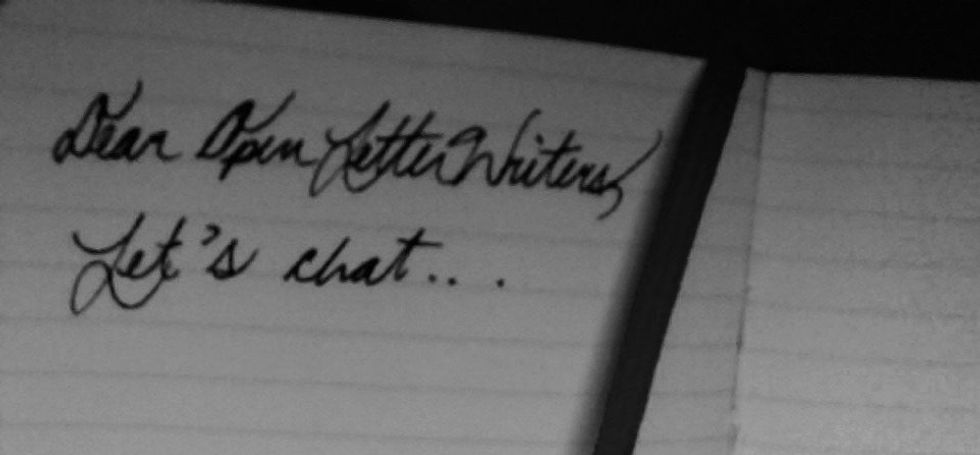 Dear Open Letter Writers,
Let's chat...